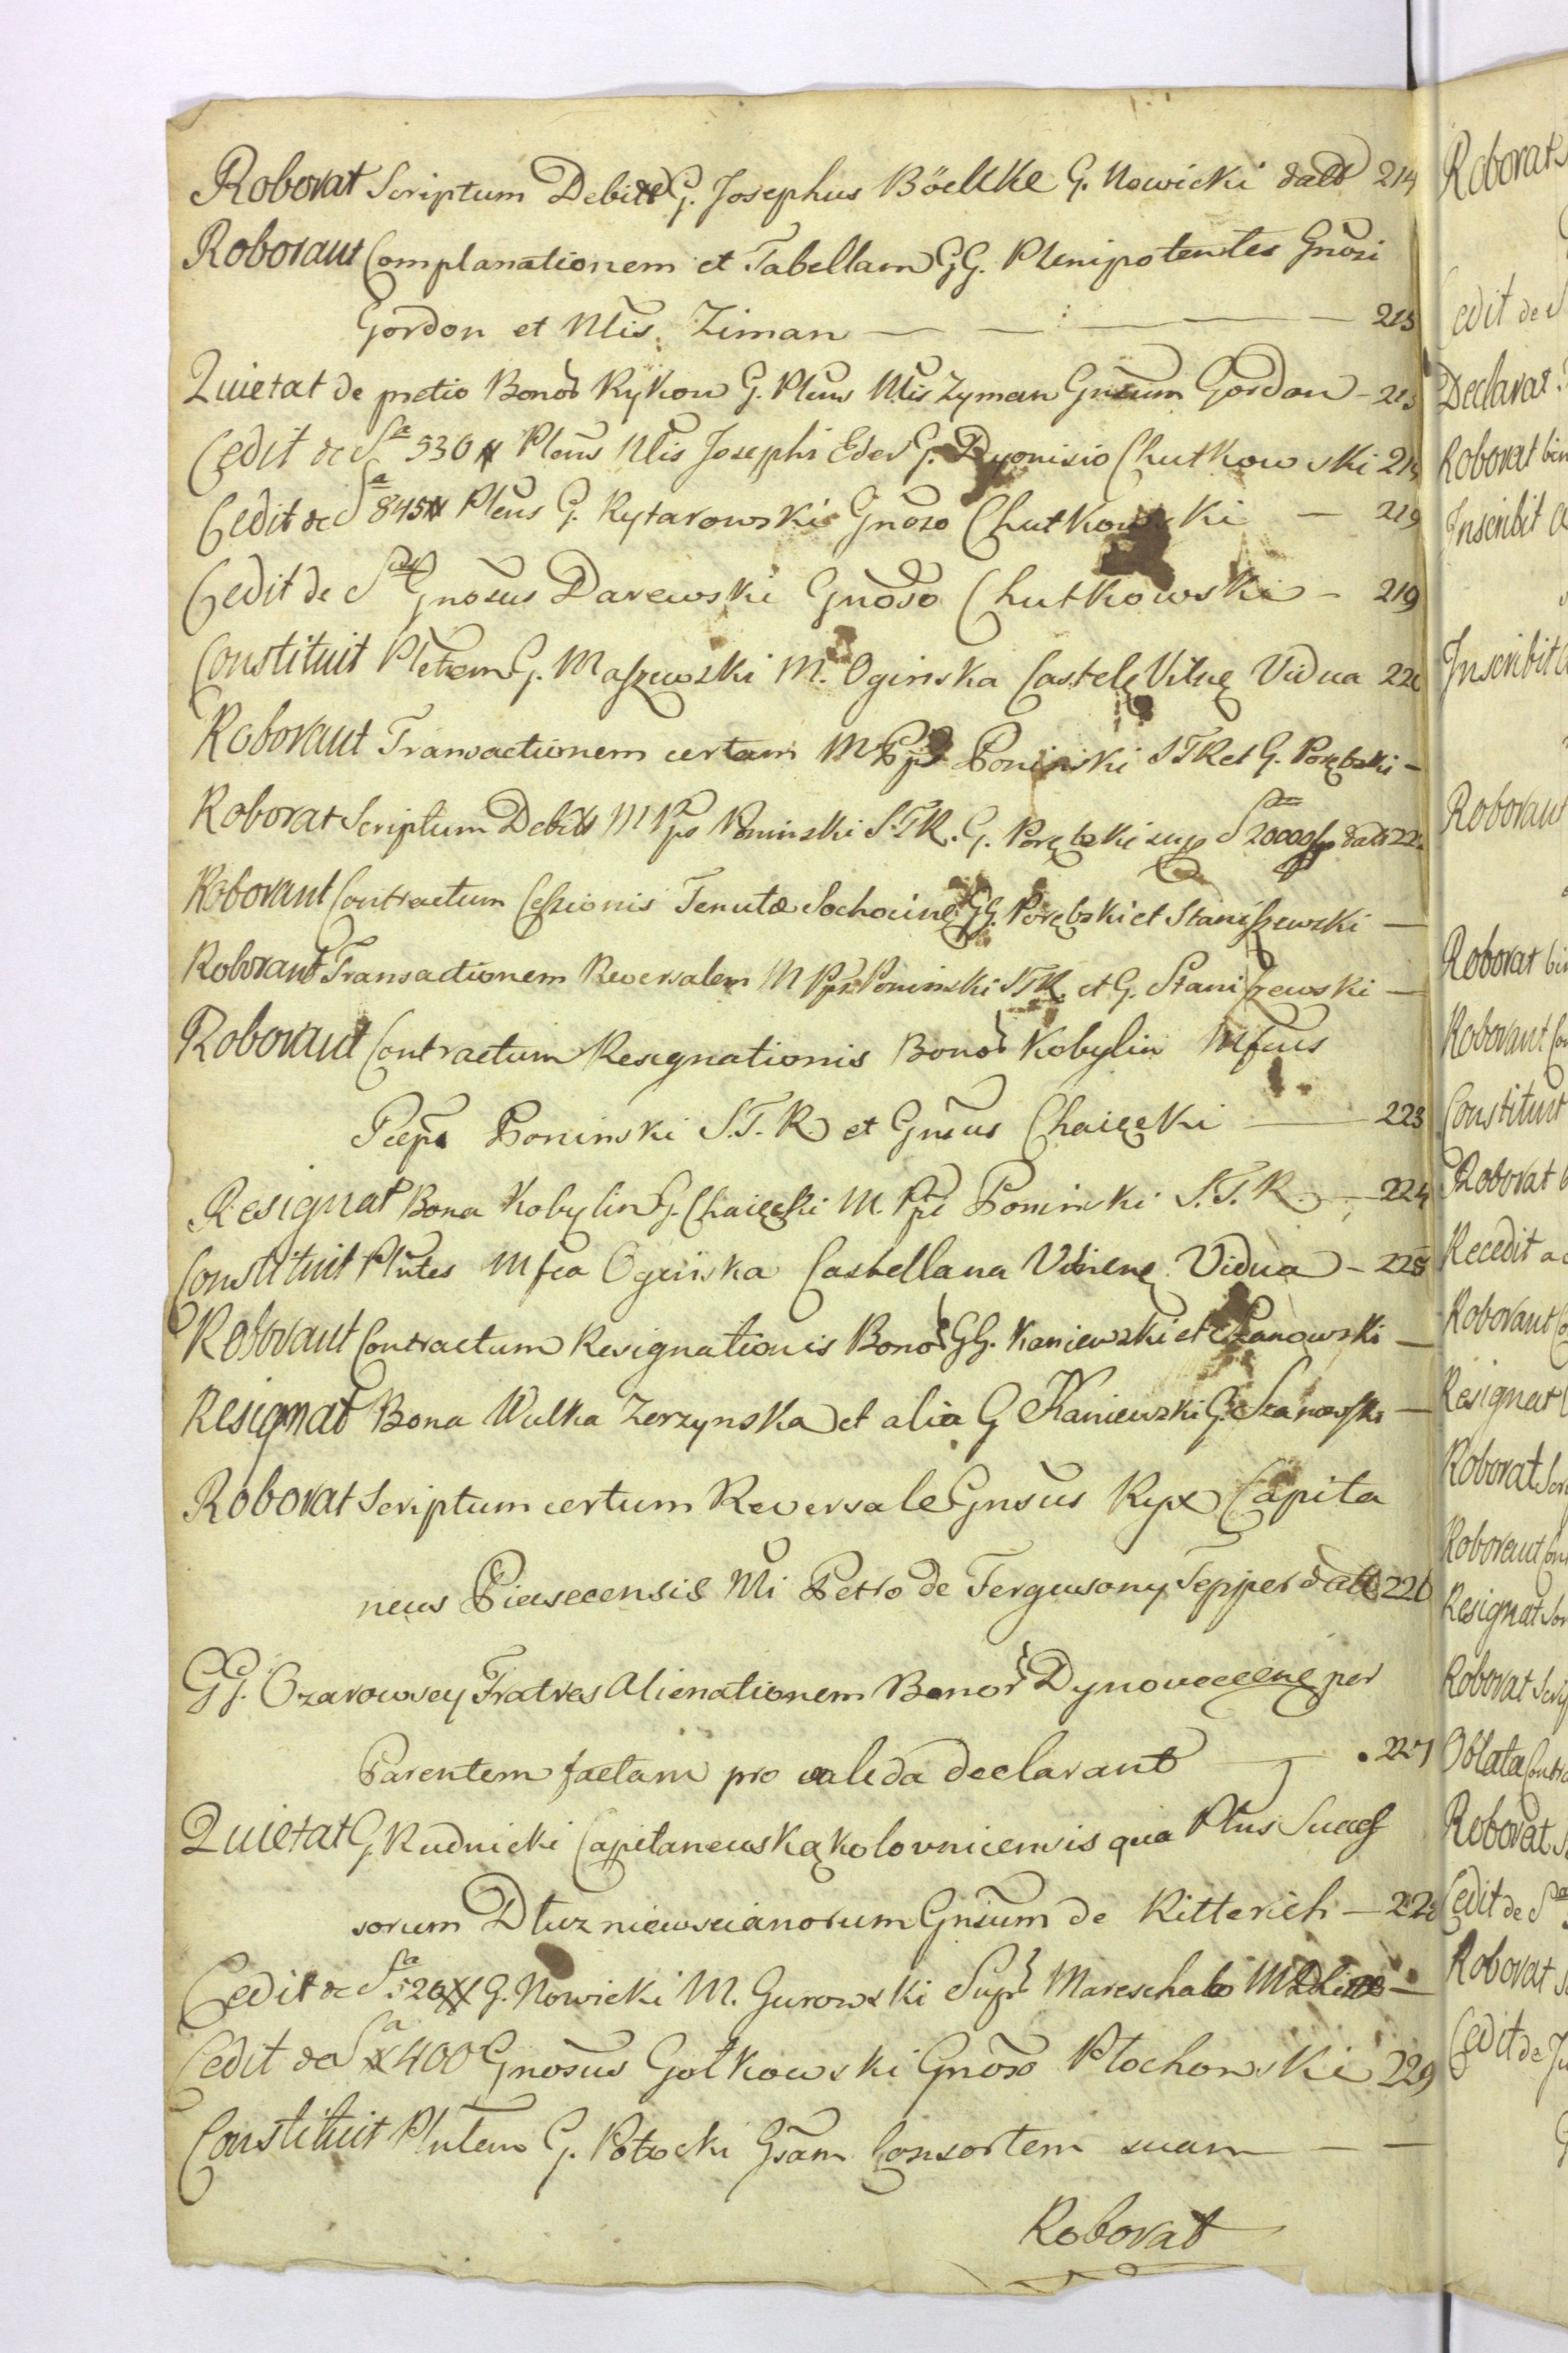 Roborat Scriptum Debiti G. Josephus Böeltke G. Nowicki dati 214
Roborant Complanationem et Tabellam GG. Plenipotentes Gnosi
Gordon et Nlis Ziman 215
Quietat de pretio Bonor Rykow G. Plens Nlis Zyman Gnsum Gordon - 215
Cedit de Sa 530 # Plens Nlis Josephi Eder G. Dyonisio Chutkowski
Cedit de Sa 845 # Plens G. Rytarowski Gnoso Chutkowski - 219
Cedit de S Gnosus Darewski Gnoso Chutkowski - 219
Constituit Pltem G. Maszewski M. Oginska Castelę Vilnę Vidua
Roborant Transactionem certam M Pps Poninski S T R et G. Porębski -
Roborat Scriptum Debiti M Pps Poninski S. T. R. G. Porębski sup S 20000 fp dati
Roborant Contractum Cessionis Tenutæ Sochocinę GG. Porębski et Staniszewski -
Roborant Transactionem Reversalem M Pps Poninski S T R. et G. Staniszewski -
Roborant Contractum Resignationis Bonor Kobylin Mfcus
Pceps Poninski S. T. R. et Gnsus Chaięcki 223
Resignat Bona Kobylin G. Chaięcki M. Ppi Poninski S. T. R. - 224
Constituit Plntes Mfca Oginska Castellana Vilnenę Vidua - 225
Roborant Contractum Resignationis Bonor GG. Kaniewski et Szanowski -
Resignat Bona Wulka Zerzynska et alia G Kaniewski G. Szanowski -
Roborat Scriptum certum Reversale Gnsus Ryx Capita
neus Piasecensis Nli Petro de Fergusony Tepper dati 226
GG. Ozarowscy Fratres Alienationem Bonor per
Parentem factam pro valida declarant . 227
Quietat G Rudnicki Capitaneus Kąkolovnicensis qua Plnus Succes
sorum Dłuzniewscianorum Gnsum de Kitterich -
Cedit de Sa 520 # G. Nowicki M. Gurowski Supr Mareschalo M D Litt -
Cedit de Sa # 400 Gnosus Gołkowski Gnoso Płochowski 229
Constituit Plntem G. Potocki Gsam Consortem suam - -
Roborat
Roborat
Cedit de S
Declarat
Roborat bin
Inscribit
Inscribit
Roborant
Roborat bin
Roborant Con
Constituit
Roborat
Recedit a
Roborant
Resignat
Roborat Scr
Roborant Con
Resignat
Roborat Scrip
Oblata Contra
Roborat
Cedit de Sa
Roborat
Cedit de